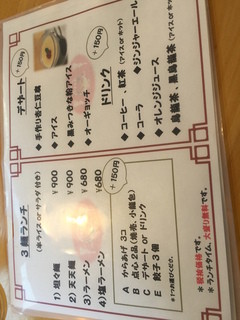 デザート
+150円
◆ 手作り杏仁豆腐
◆ アイス
◆ 黒みつきな粉アイス
◆ オーギョッチ
ドリンク
+150円
◆ コーヒー、紅茶(アイスorホット)
◆ ジンジャーエール
◆ コーラ
◆ オレンジジュース
◆ 烏龍茶、黒烏龍茶(アイスorホット)
3 麺ランチ
(半ライス or サラダ 付き)
1) 坦々麺 ¥900
2) 天天麺 ¥900
3) ラーメン ¥680
4) 塩ラーメン ¥680
+150円
A からあげ 3コ
B 点心2品(焼売、小籠包)
C デザート or ドリンク
E 餃子3個
*税抜価格です。
*ランチタイム、大盛り無料です。